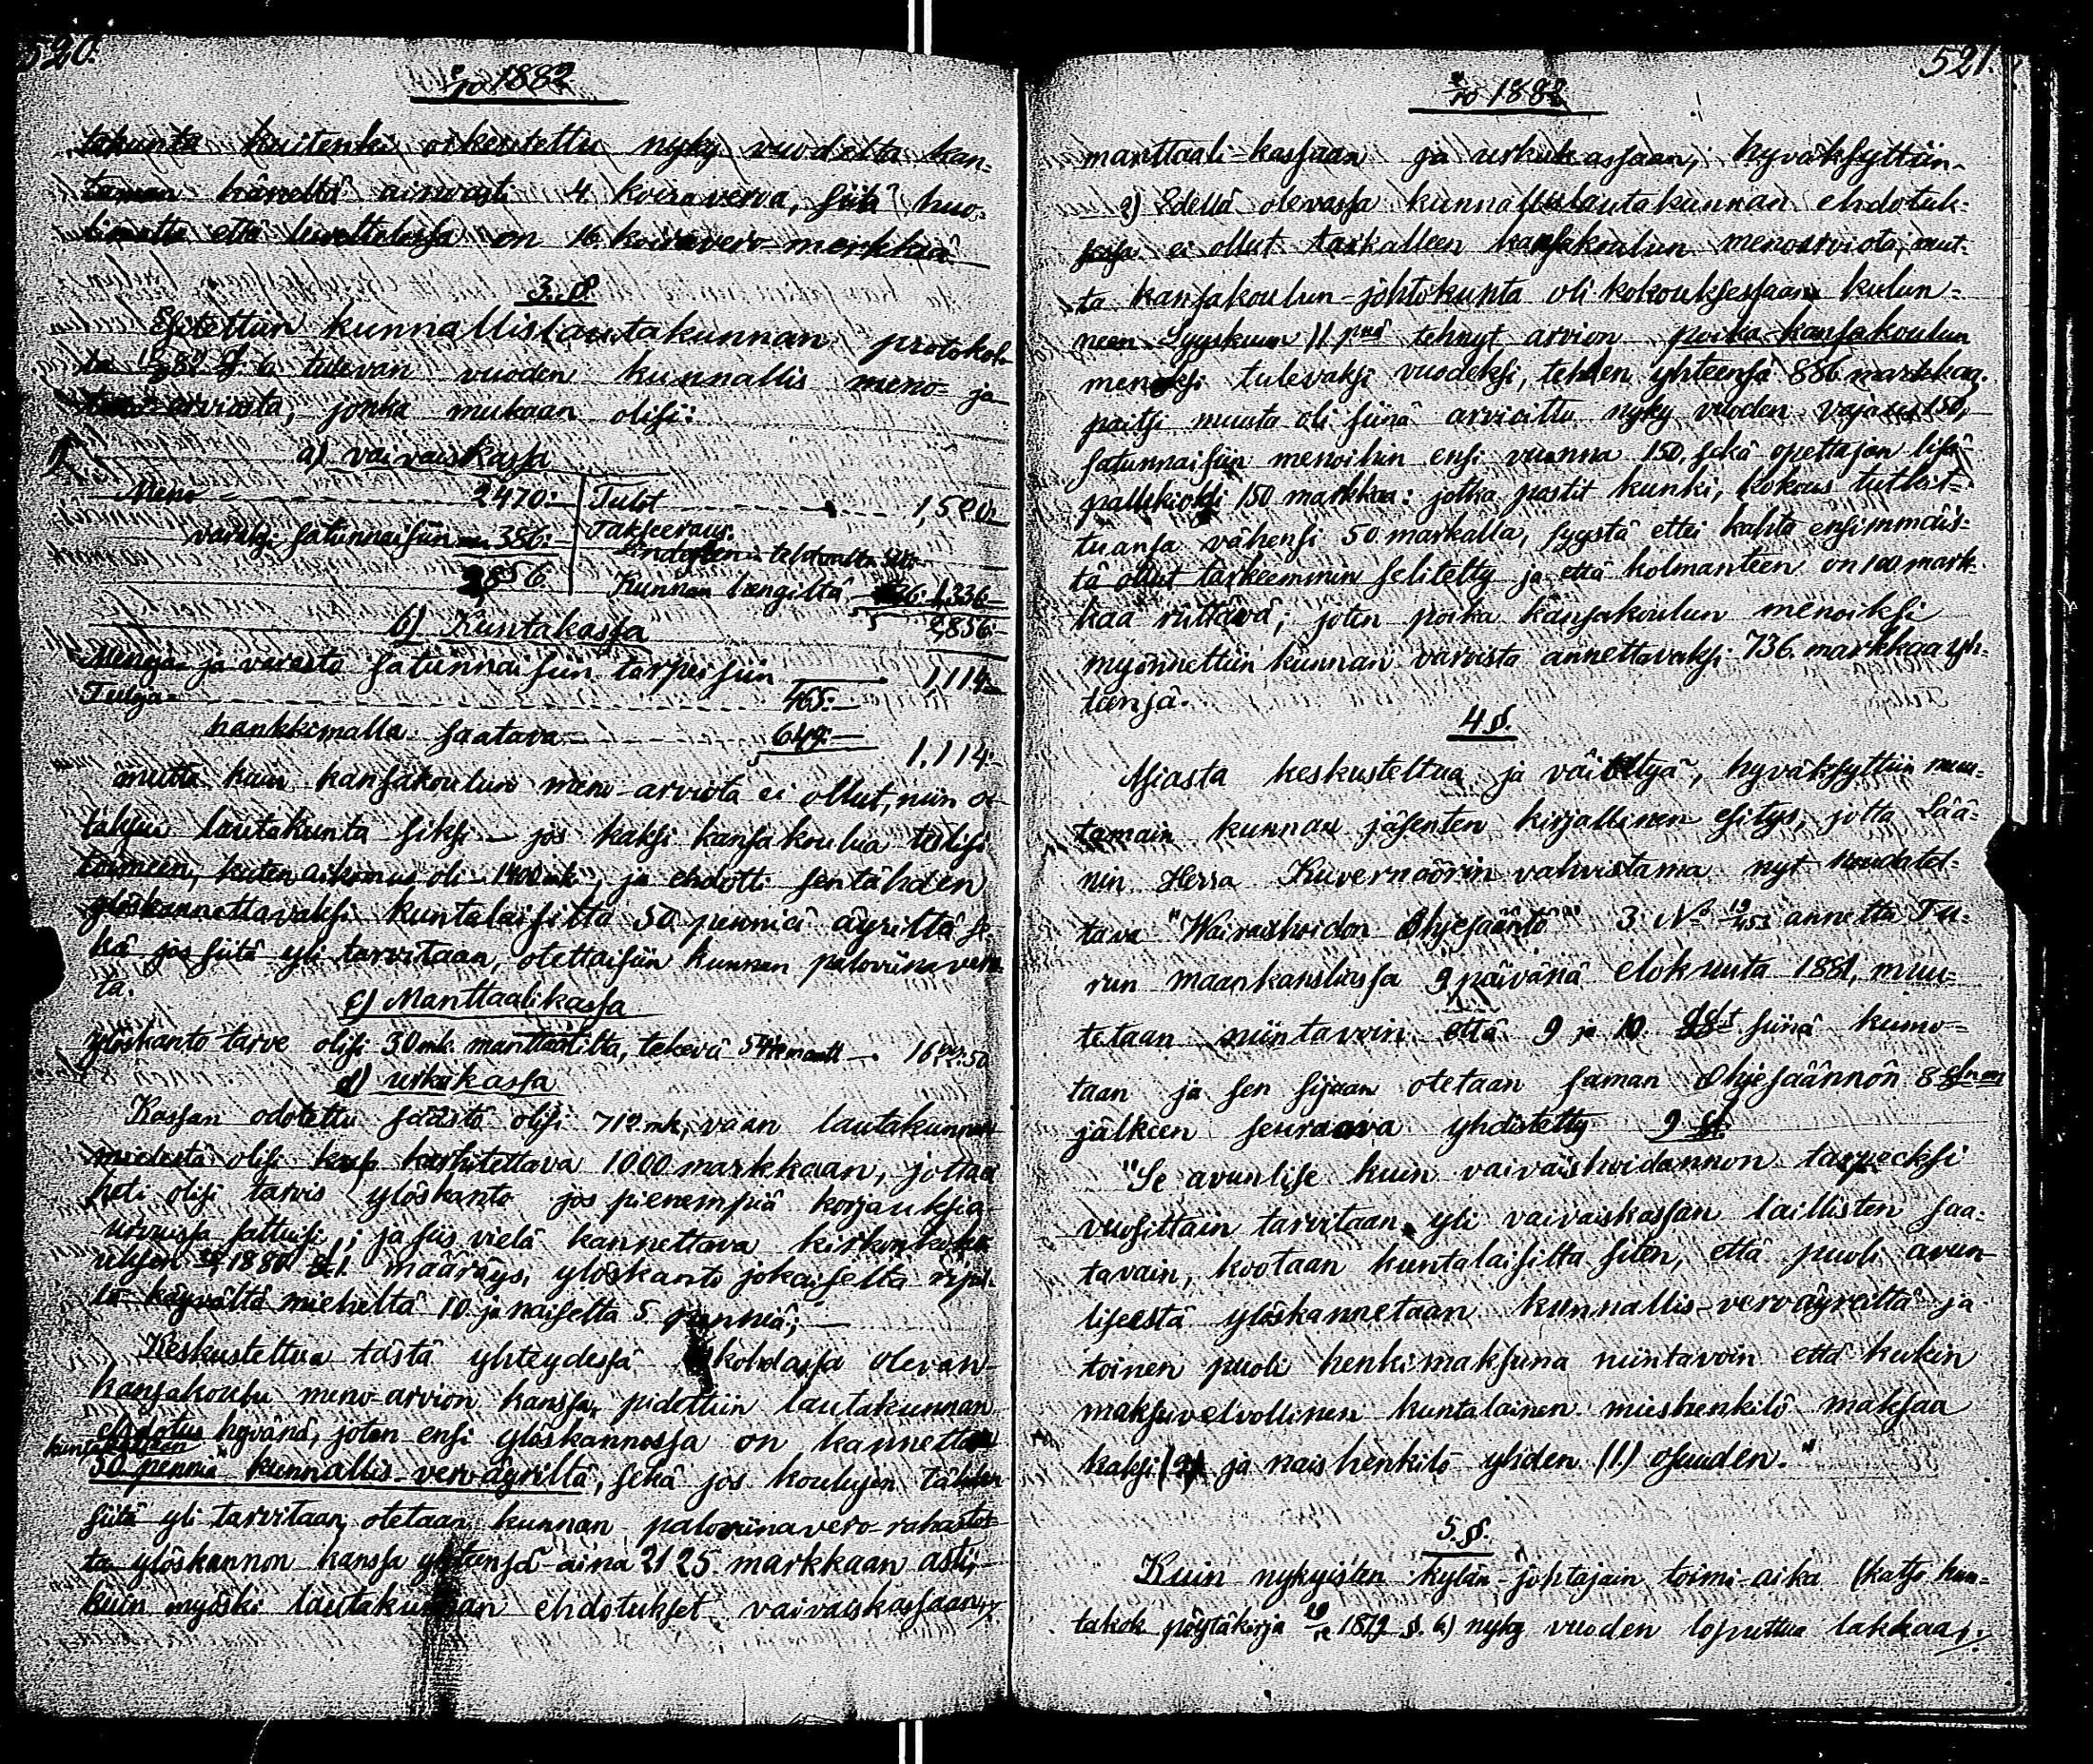 520.
2/10 1882
takunta kuitenki oikeutettu nyky vuodelta kan-
taman häneltä ainoasti 4 koiraveroa, siitä huo-
limatta että luettelossa on 16 koiravero merkkiä
3. §.
Esitettiin kunnallislautakunnan protokol-
82 §. 6 tulevan vuoden kunnallis meno- ja
tulo-arviosta, jonka mukaan olisi:
a) vaivaiskassa
Meno - 2470:- Tulot 1,520:-
varalle satunnaisiin 386:- Takseeraus.
2856. Kunnan hengiltä 1,336
2,856:-
b) Kuntakassa
Menoja ja varasto satunnaisiin tarpeisiin 1,114:-
Tuloja 465:-
hankkimalla saatava 649:- 1,114:-
mutta kuin kansakoulun meno-arviota ei ollut, niin o-
taksui lautakunta siksi - jos kaksi kansakoulua tulisi
toimeen, kuten aikomus oli 1400 mk, ja ehdotti sentähden
ylöskannettavaksi kuntalaisilta 50 penniä äyriltä se-
kä jos siitä yli tarvitaan, otettaisiin kunnan paloviinavero-
ta.
c) Manttaalikassa
Ylöskanto tarve olisi 30 mk. manttaalilta, tekevä 16 50
d) urkukassa
Kassan odotettu säästö olisi 712 mk, vaan lautakunnan
mielestä olisi kassa kartutettava 1000 markkaan, jottaa
heti olisi tarvis ylöskanto jos pienempiä korjauksia
uruissa sattuisi; ja siis vielä kannettava kirkonkoko-
uksen 1880 § 1. määräys, ylöskanto jokaiselta ripil-
lä käyvältä mieheltä 10 ja naiselta 5 penniä; -
Keskusteltua tästä yhteydessä kohdassa olevan
kansakoulu meno-arvion kanssa, pidettiin lautakunnan
ehdotus hyvänä, joten ensi ylöskannossa on kannettava
kuntakassaan
50 penniä kunnallis-veroäyriltä, sekä jos koulujen tähden
siitä yli tarvitaan, otetaan kunnan paloviinavero-rahastos-
ta ylöskannon kanssa yhteensä aina 2125. markkaan asti,
kuin myöski lautakunnan ehdotukset vaivaiskassaan,
521.
2/10 1882
manttaali-kassaan ja urkukassaan, hyväksyttiin.
2) Edellä olevassa kunnallislautakunnan ehdotuk-
sessa ei ollut tarkalleen kansakoulun menoarviota, mut-
ta kansakoulun-johtokunta oli kokouksessaan kulun-
neen Syyskuun 11 pnä tehnyt arvion poika-kansakoulun
menoksi tulevaksi vuodeksi, tehden yhteensä 886 markkaa.
paitsi muuta oli siinä arvioittu nyky vuoden vajaus 150,
satunnaisiin menoihin ensi vuonna 150, sekä opettajan lisä-
palkkioksi 150 markkaa: jotka postit kunki, kokous tutkit-
tuansa vähensi 50 markalla, syystä ettei kahta ensimmäis-
tä ollut tarkeemmin selitelty ja että kolmanteen on 100 mark-
kaa riittävä; joten poika kansakoulun menoiksi
myönnettiin kunnan varoista annettavaksi 736. markkaa yh-
teensä.
4 §.
Asiasta keskusteltua ja väiteltyä, hyväksyttiin muu-
tamain kunnan jäsenten kirjallinen esitys, jotta Lää-
nin Herra Kuvernöörin vahvistama nyt noudatet-
tava "Waivaishoidon Ohjesääntö" 3 No 19/453 annettu Tu-
run maankansliassa 9 päivänä elokuuta 1881, muu-
tetaan niintavoin että 9 ja 10 §§t siinä kumo-
taan ja sen sijaan otetaan saman Ohjesäännön 8 §:n
jälkeen seuraava yhdistetty 9 §.
"Se avunlise kuin vaivaishoidannon tarpeeksi
vuosittain tarvitaan yli vaivaiskassan laillisten saa-
tavain, kootaan kuntalaisilta siten, että puoli avun-
liseestä ylöskannetaan kunnallis-veroäyreiltä ja
toinen puoli henkimaksuna niintavoin että kukin
maksuvelvollinen kuntalainen mieshenkilö maksaa
kaksi (2) ja naishenkilö yhden (1.) osuuden."
5. §.
Kuin nykyisten kylän-johtajain toimi-aika (katso kun-
takok pöytäkirja 1879 §. 6) nyky vuoden loputtua lakkaa;